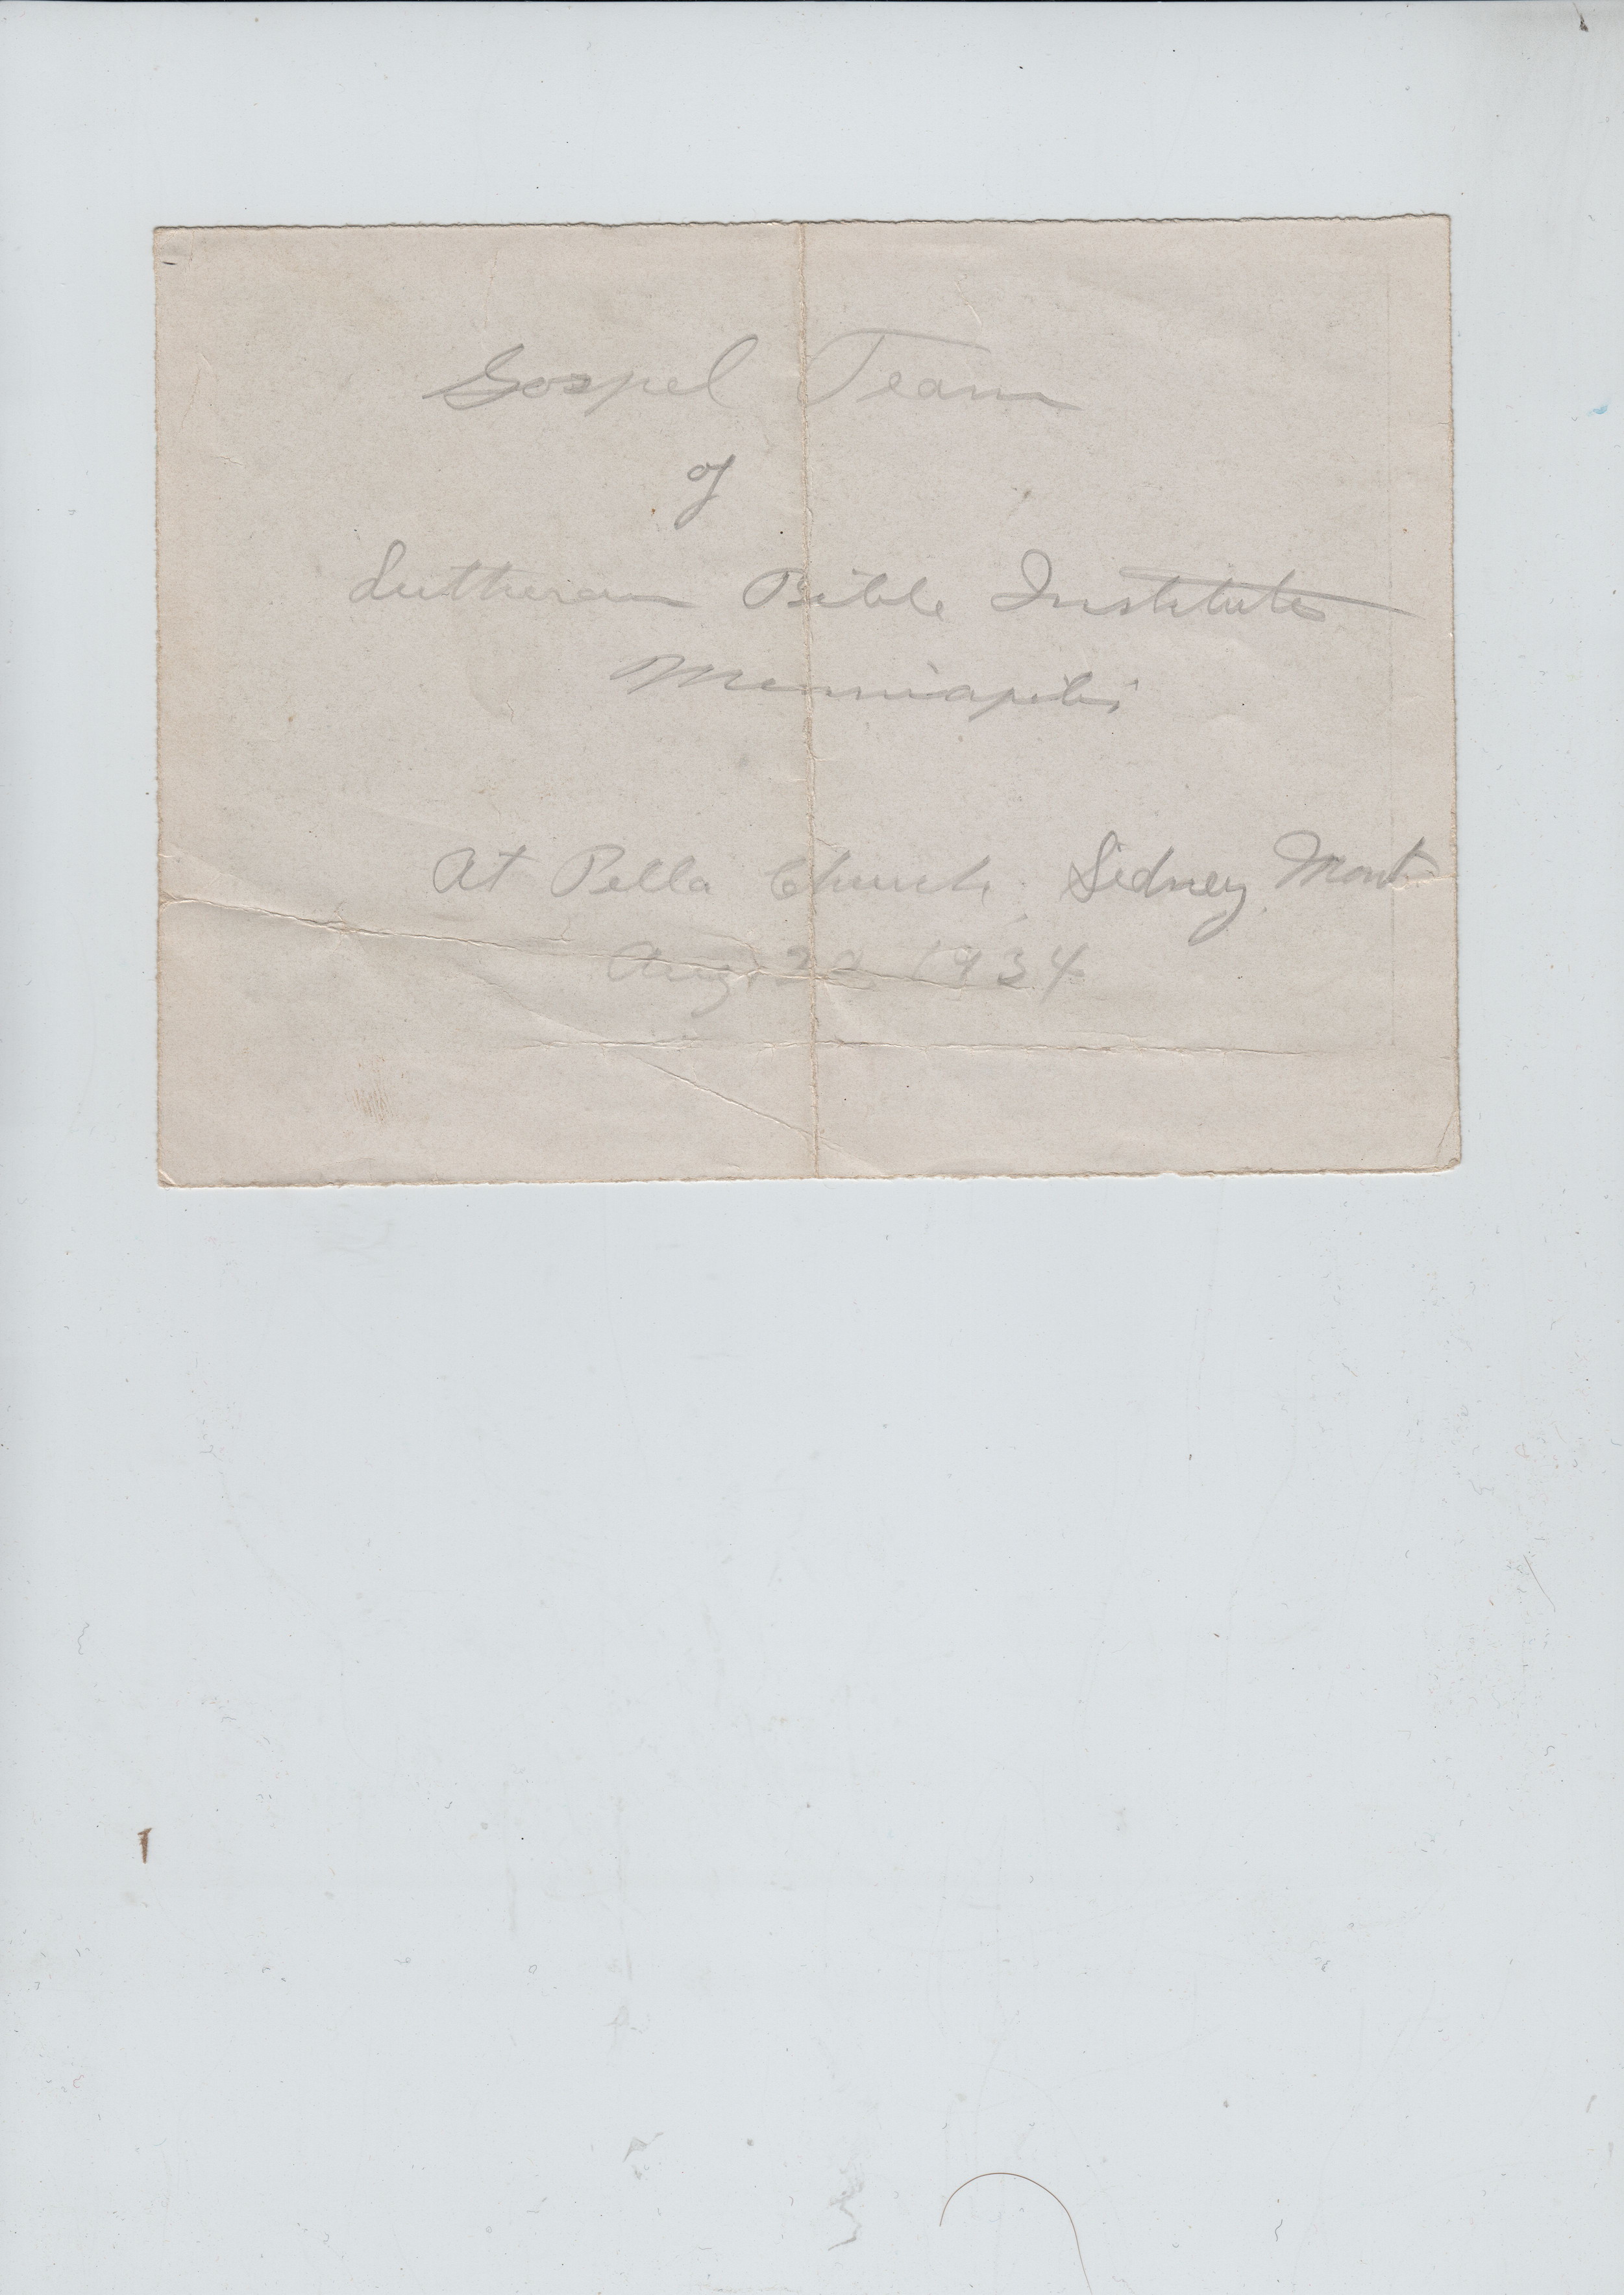 Gospel Team
of
Lutheran Bible Institute
Minniapolis
At Pella Church, Sidney, Mont.
Aug. 1934